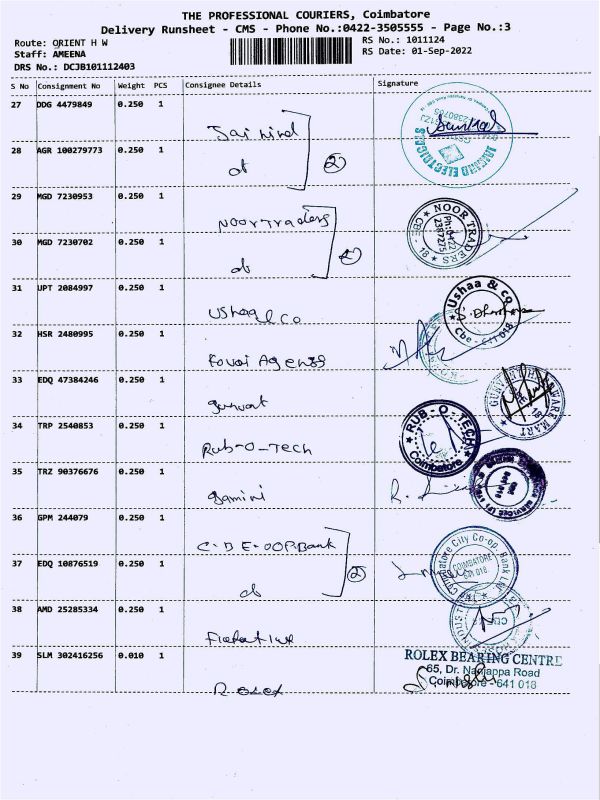 THE PROFESSIONAL COURIERS, Coimbatore
Delivery Runsheet - CMS - Phone No.:0422-3505555 - Page No.:3
Route: ORIENT H W
RS No.: 1011124
Staff: AMEENA
RS Date: 01-Sep-2022
DRS No.: DCJB101112403
S No Consignment No Weight PCS Consignee Details Signature
27 DDG 4479849 0.250 1
28 AGR 100279773 0.250 1
do (2)
29 MGD 7230953 0.250 1
NOOR Traders
NOOR TRADERS
Ph:0422
2387275
CBE - 18
30 MGD 7230702 0.250 1
do (2)
31 UPT 2084997 0.250 1
Ushaa & Co
Ushaa & co
Cbe - 641 018
32 HSR 2480995 0.250 1
Kovai Agenss
33 EDQ 47384246 0.250 1
34 TRP 2540853 0.250 1
Rub-O-Tech
RUB - O - TECH
Coimbatore
35 TRZ 90376676 0.250 1
Gamini
36 GPM 244079 0.250 1
Coimbatore City Co-op. Bank Ltd
COIMBATORE
641 018
37 EDQ 10876519 0.250 1
do (2)
38 AMD 25285334 0.250 1
39 SLM 302416256 0.010 1
Rolex
ROLEX BEARING CENTRE
65, Dr. Nanjappa Road
Coimbatore - 641 018